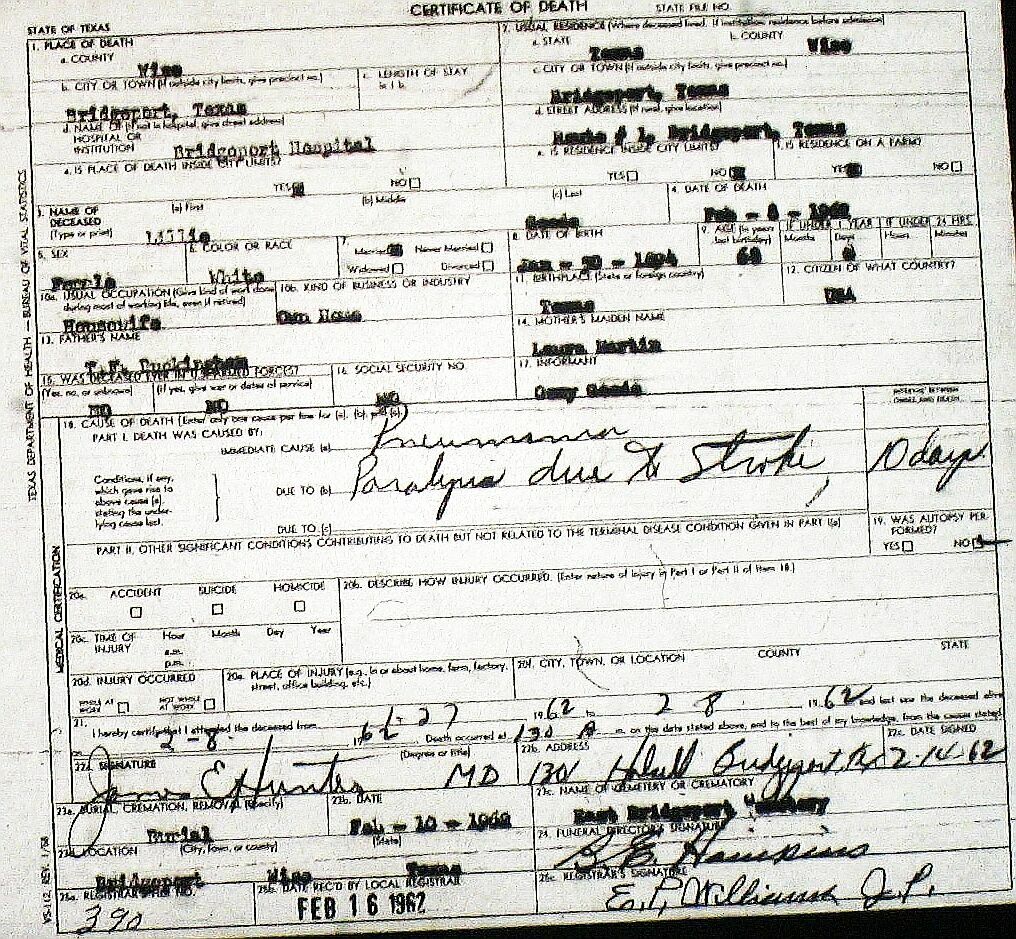 CERTIFICATE OF DEATH
STATE OF TEXAS
STATE FILE NO.
1. PLACE OF DEATH
a. COUNTY
Wise
2. USUAL RESIDENCE (Where deceased lived. If institution: residence before admission)
a. STATE
Texas
b. COUNTY
Wise
b. CITY OR TOWN (If outside city limits, give precinct no.)
Bridgeport, Texas
c. LENGTH OF STAY
in 1 b.
c. CITY OR TOWN (If outside city limits, give precinct no.)
Bridgeport, Texas
d. NAME OF (If not in hospital, give street address)
HOSPITAL OR
INSTITUTION
Bridgeport Hospital
d. STREET ADDRESS (If rural, give location)
# 1, Bridgeport, Texas
e. IS PLACE OF DEATH INSIDE CITY LIMITS?
YES
NO
e. IS RESIDENCE INSIDE CITY LIMITS?
YES
NO
f. IS RESIDENCE ON A FARM?
YES
NO
3. NAME OF
DECEASED
(Type or print)
(a) First
Lillie
(b) Middle
(c) Last
4. DATE OF DEATH
Feb - 8 - 1962
5. SEX
Female
6. COLOR OR RACE
White
7.
Married
Never Married
Widowed
Divorced
8. DATE OF BIRTH
Jan - 30 - 1894
9. AGE (In years
last birthday)
68
IF UNDER 1 YEAR
Months
Days
IF UNDER 24 HRS.
Hours
Minutes
10a. USUAL OCCUPATION (Give kind of work done
during most of working life, even if retired)
Housewife
10b. KIND OF BUSINESS OR INDUSTRY
Own Home
11. BIRTHPLACE (State or foreign country)
Texas
12. CITIZEN OF WHAT COUNTRY?
USA
13. FATHER'S NAME
T.F. Buckingham
14. MOTHER'S MAIDEN NAME
Laura Martin
15. WAS DECEASED EVER IN U.S. ARMED FORCES?
(Yes, no, or unknown)
(If yes, give war or dates of service)
NO
NO
16. SOCIAL SECURITY NO.
NO
17. INFORMANT
18. CAUSE OF DEATH (Enter only one cause per line for (a), (b), and (c).)
PART I. DEATH WAS CAUSED BY:
IMMEDIATE CAUSE (a)
Pneumonia
INTERVAL BETWEEN
ONSET AND DEATH
Conditions, if any,
which gave rise to
above cause (a),
stating the under-
lying cause last.
DUE TO (b)
Paralysis due to Stroke
10 days
DUE TO (c)
PART II. OTHER SIGNIFICANT CONDITIONS CONTRIBUTING TO DEATH BUT NOT RELATED TO THE TERMINAL DISEASE CONDITION GIVEN IN PART I(a)
19. WAS AUTOPSY PER-
FORMED?
YES
NO
20a.
ACCIDENT
SUICIDE
HOMICIDE
20b. DESCRIBE HOW INJURY OCCURRED. (Enter nature of injury in Part I or Part II of item 18.)
20c. TIME OF
INJURY
Hour
Month
Day
Year
a.m.
p.m.
20d. INJURY OCCURRED
WHILE AT
WORK
NOT WHILE
AT WORK
20e. PLACE OF INJURY (e.g., in or about home, farm, factory,
street, office building, etc.)
20f. CITY, TOWN, OR LOCATION
COUNTY
STATE
21.
I hereby certify that I attended the deceased from
1-27 1962 to 2 8 1962 and last saw the deceased alive
2-8- 1962 Death occurred at 130 A m. on the date stated above, and to the best of my knowledge, from the causes stated.
22a. SIGNATURE
James E Hunter
(Degree or title)
MD
22b. ADDRESS
Bridgeport, Tx
22c. DATE SIGNED
2-14-62
23a. BURIAL, CREMATION, REMOVAL (Specify)
Burial
23b. DATE
Feb - 10 - 1962
23c. NAME OF CEMETERY OR CREMATORY
East Bridgeport Cemetery
23d. LOCATION
(City, town, or county)
(State)
Bridgeport
Wise
Texas
24. FUNERAL DIRECTOR'S SIGNATURE
25a. REGISTRAR'S FILE NO.
390
25b. DATE REC'D BY LOCAL REGISTRAR
FEB 16 1962
25c. REGISTRAR'S SIGNATURE
E.P. Williams J.P.
TEXAS DEPARTMENT OF HEALTH — BUREAU OF VITAL STATISTICS
MEDICAL CERTIFICATION
VS-112, REV. 1/58